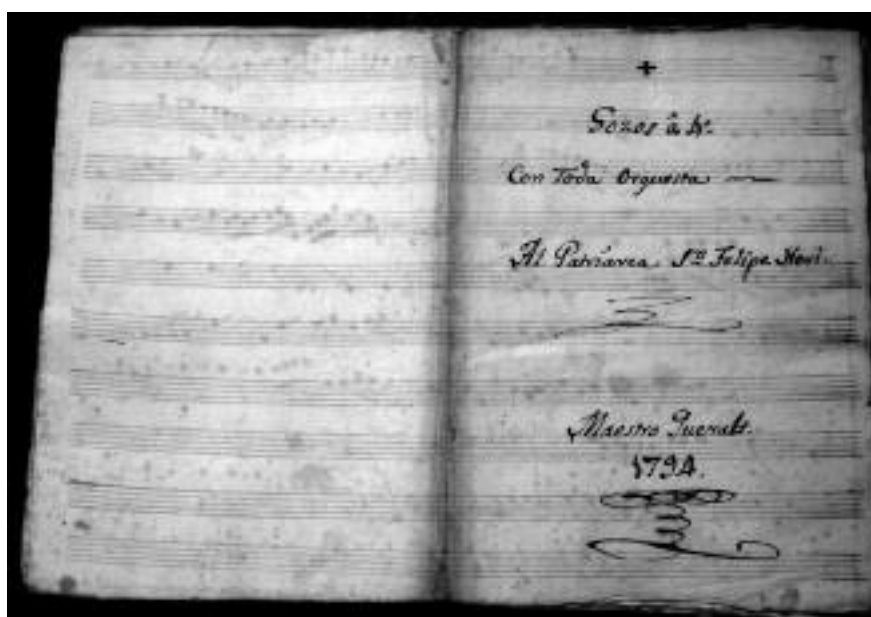 +
Gozos à 4º.
Con Toda Orquesta
Al Patriarca Sn. Felipe Neri.
Maestro
1794.